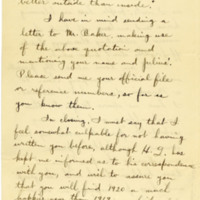 better outside than inside."
I have in mind sending a
letter to Mr. Baker, making use
of the above quotation and
mentioning your name and
Please send me your official file
or reference numbers, so far as
you know them.
In closing, I must say that I
feel somewhat culpable for not having
written you before, although H. G. has
kept me informed as to his correspondence
with you, and will to assure you
that you will find 1920 a much
happier year than 1919